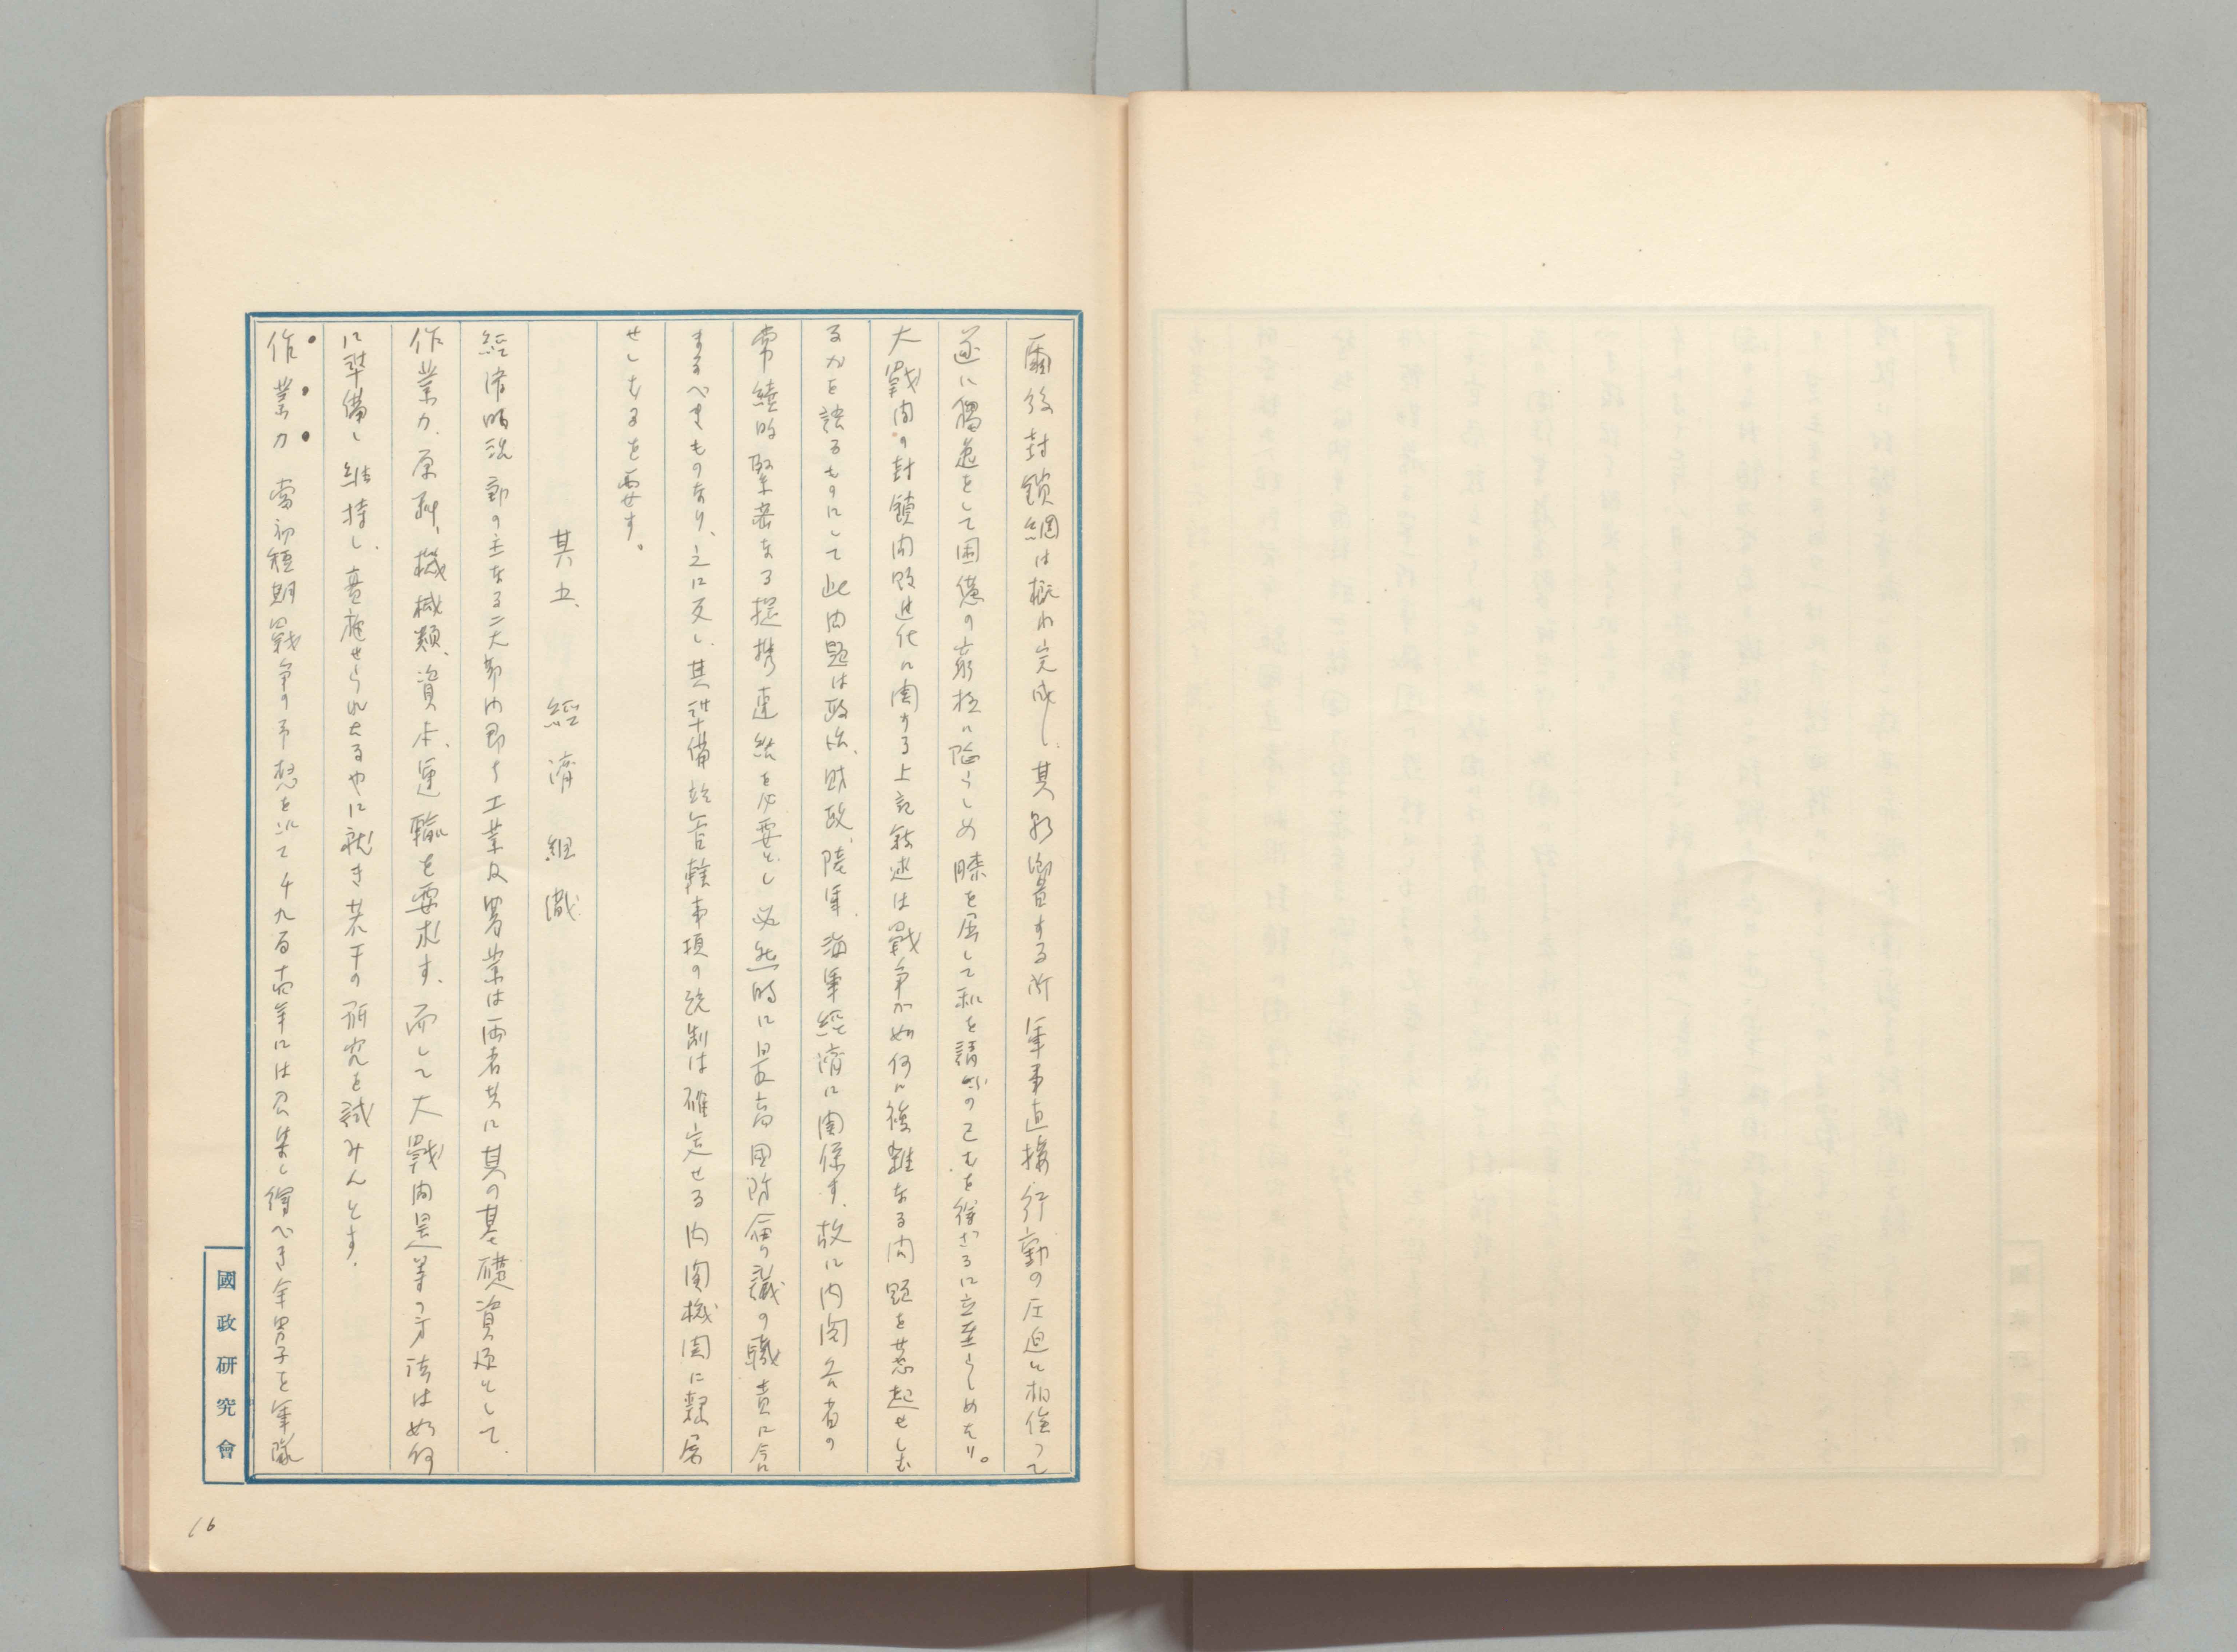 爾後封鎖網は概ね完成し、其影響する所軍事直接行動の圧迫と相俟つて
遂に獨逸をして困憊の窮極に陥らしめ膝を屈して和を請ふの已むを得ざるに立至らしめたり。
大戰間の封鎖開設進化に関する上記叙述は戰争が如何に複雑なる問題を惹起せしむ
るかを語るものにして此問題は政治、財政、陸軍、海軍、經濟に関係す、故に内閣各省の
常続的緊密なる提携連絡を必要とし必然的に最高国防会議の職責に含
まるべきものなり、之に反し、其準備並管轄事項の統制は確定せる内閣機関に隷属
せしむるを要せす。
其五、經濟組織
經濟的活動の主なる二大部門即ち工業及農業は両者共に其の基礎資源として、
作業力、原料、機械類、資本、運輸を要求す、而して大戰間是等の方法は如何
に準備し維持し、實施せられたるやに就き若干の研究を試みんとす、
作業力 當初短期戰争の予想を以て千九百十四年には召集し得べき全男子を軍隊
國政研究會
16